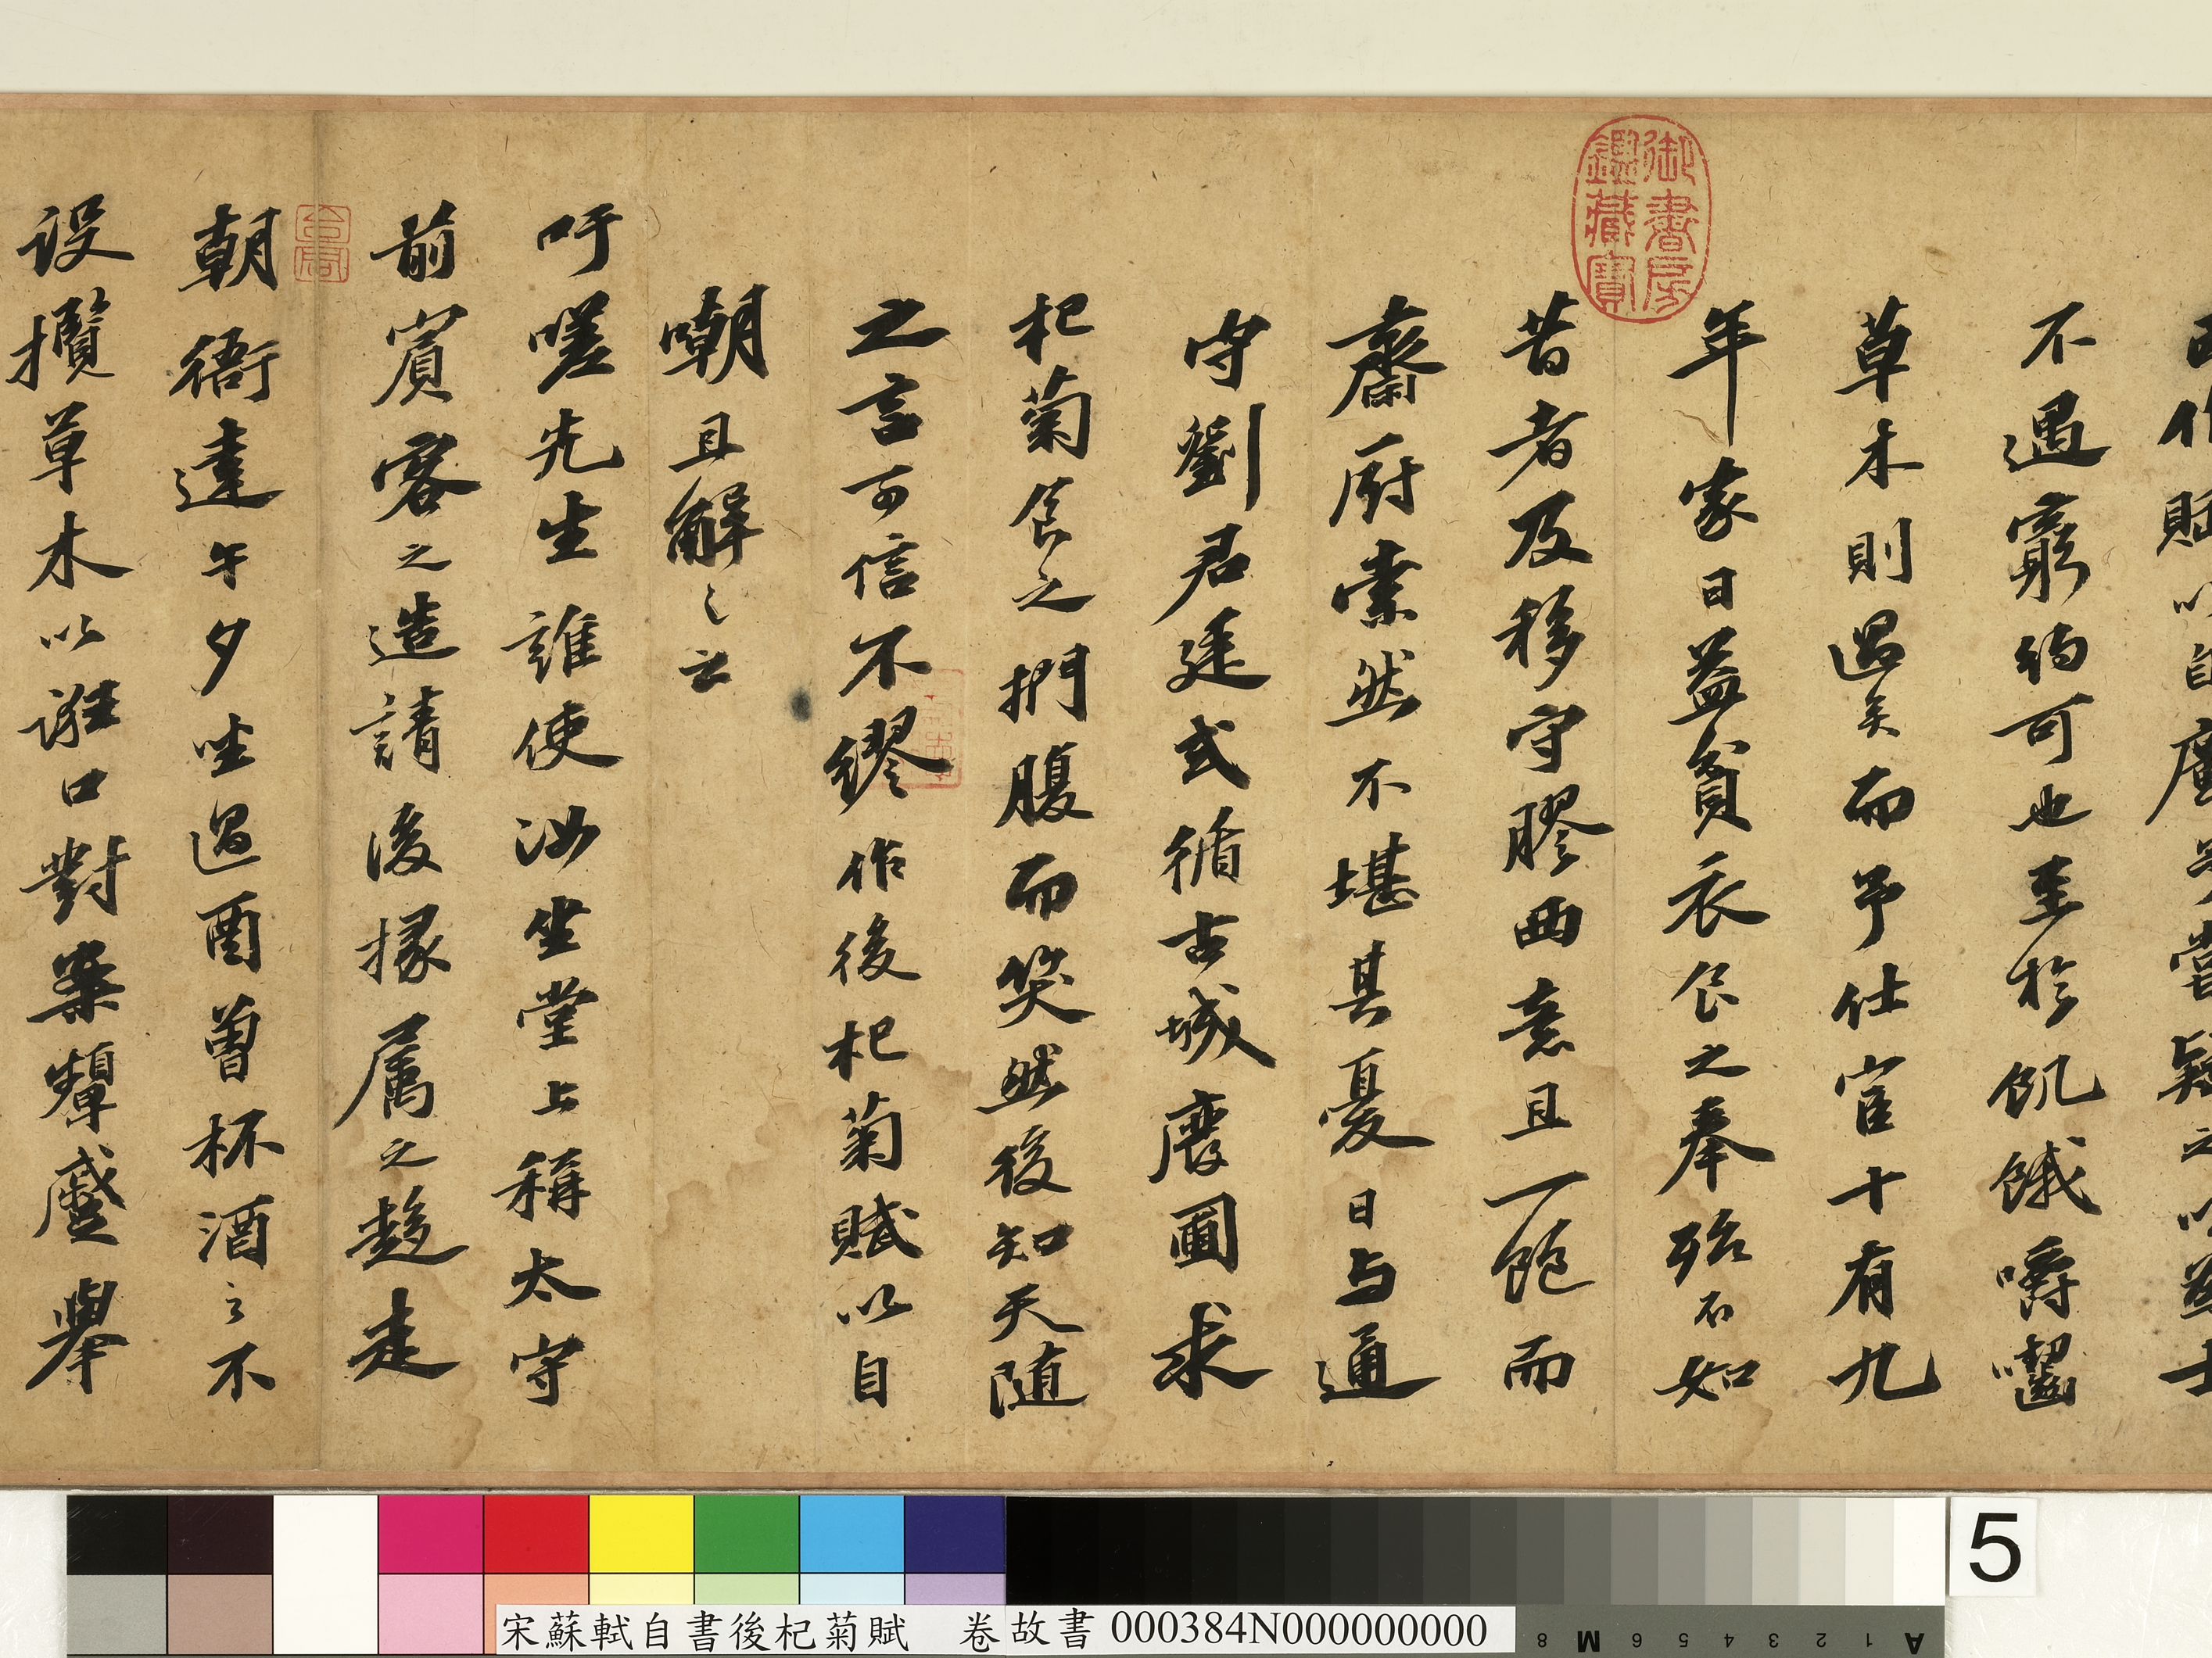 作賦以自廣始
不遇窮約可也至於飢餓嚼齧
草木則過矣而予仕宦十有九
年家日益貧衣食之奉殆不如
昔者及移守膠西意且一飽而
齋廚索然不堪其憂日与通
守劉君廷式循古城廢圃求
杞菊食之捫腹而笑然後知天随
之言可信不繆作後杞菊賦以自
嘲且解之云
吁嗟先生誰使汝坐堂上稱太守
前賓客之造請後掾属之趨走
朝衙達午夕坐過酉曾杯酒之不
设攬草木以誑口對案顰蹙舉
御書房鑑藏寶
宋蘇軾自書後杞菊賦 卷 故書000384N000000000
5
8 M 6 5 4 3 2 1 A